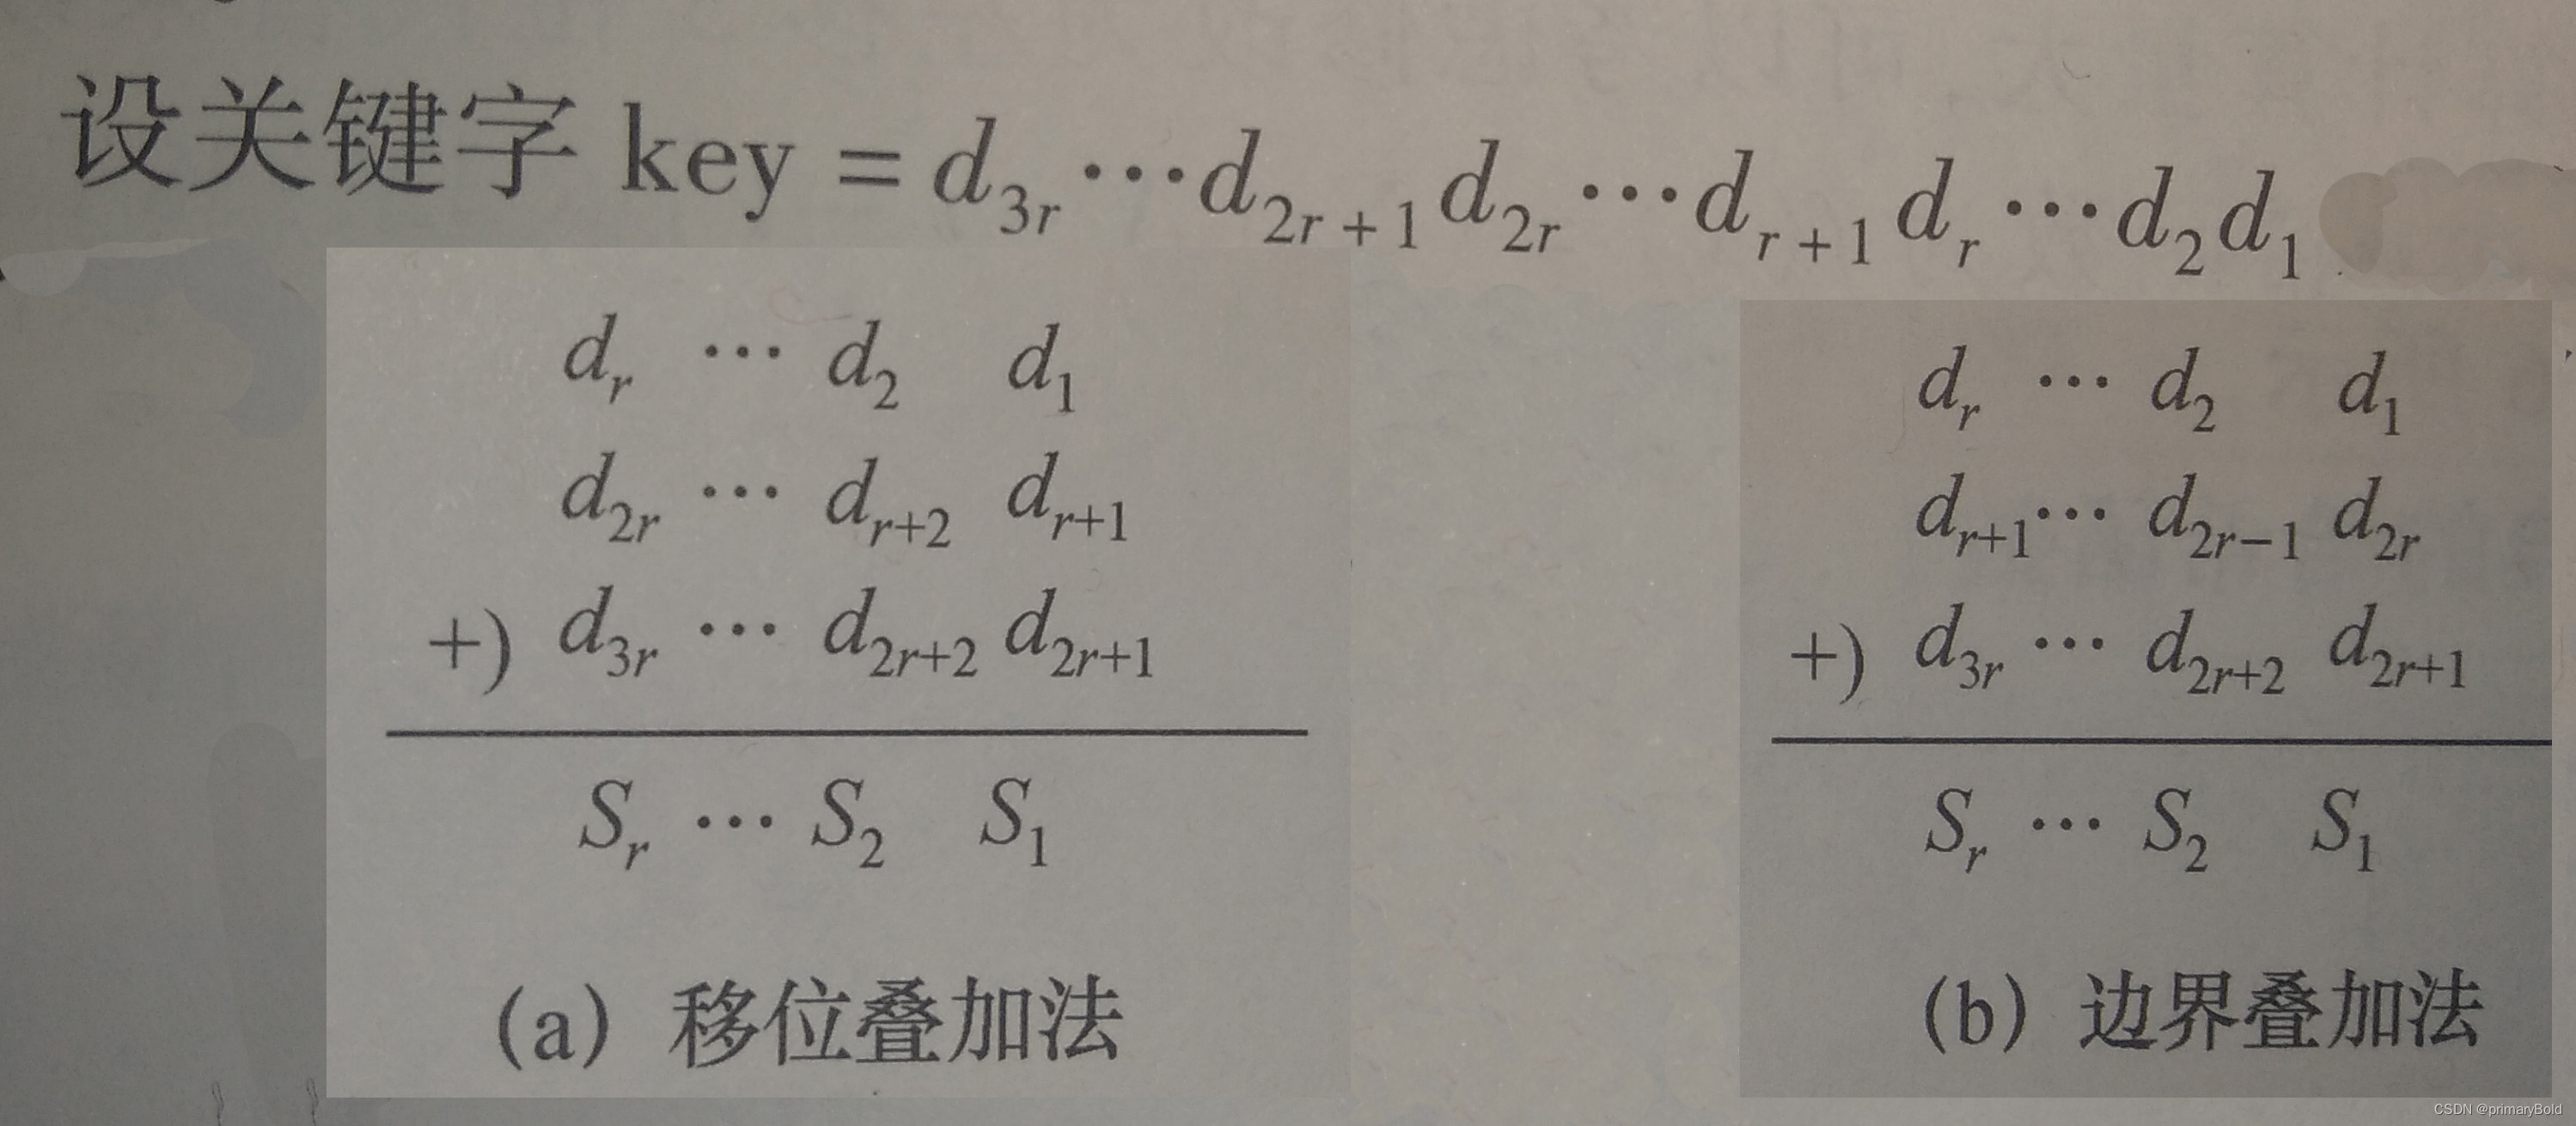 设关键字 key = d₃ᵣ⋯d₂ᵣ₊₁d₂ᵣ⋯dᵣ₊₁dᵣ⋯d₂d₁
dᵣ ⋯ d₂ d₁
d₂ᵣ ⋯ dᵣ₊₂ dᵣ₊₁
+) d₃ᵣ ⋯ d₂ᵣ₊₂ d₂ᵣ₊₁
Sᵣ ⋯ S₂ S₁
(a) 移位叠加法
dᵣ ⋯ d₂ d₁
dᵣ₊₁⋯ d₂ᵣ₋₁ d₂ᵣ
+) d₃ᵣ ⋯ d₂ᵣ₊₂ d₂ᵣ₊₁
Sᵣ ⋯ S₂ S₁
(b) 边界叠加法
CSDN @primaryBold